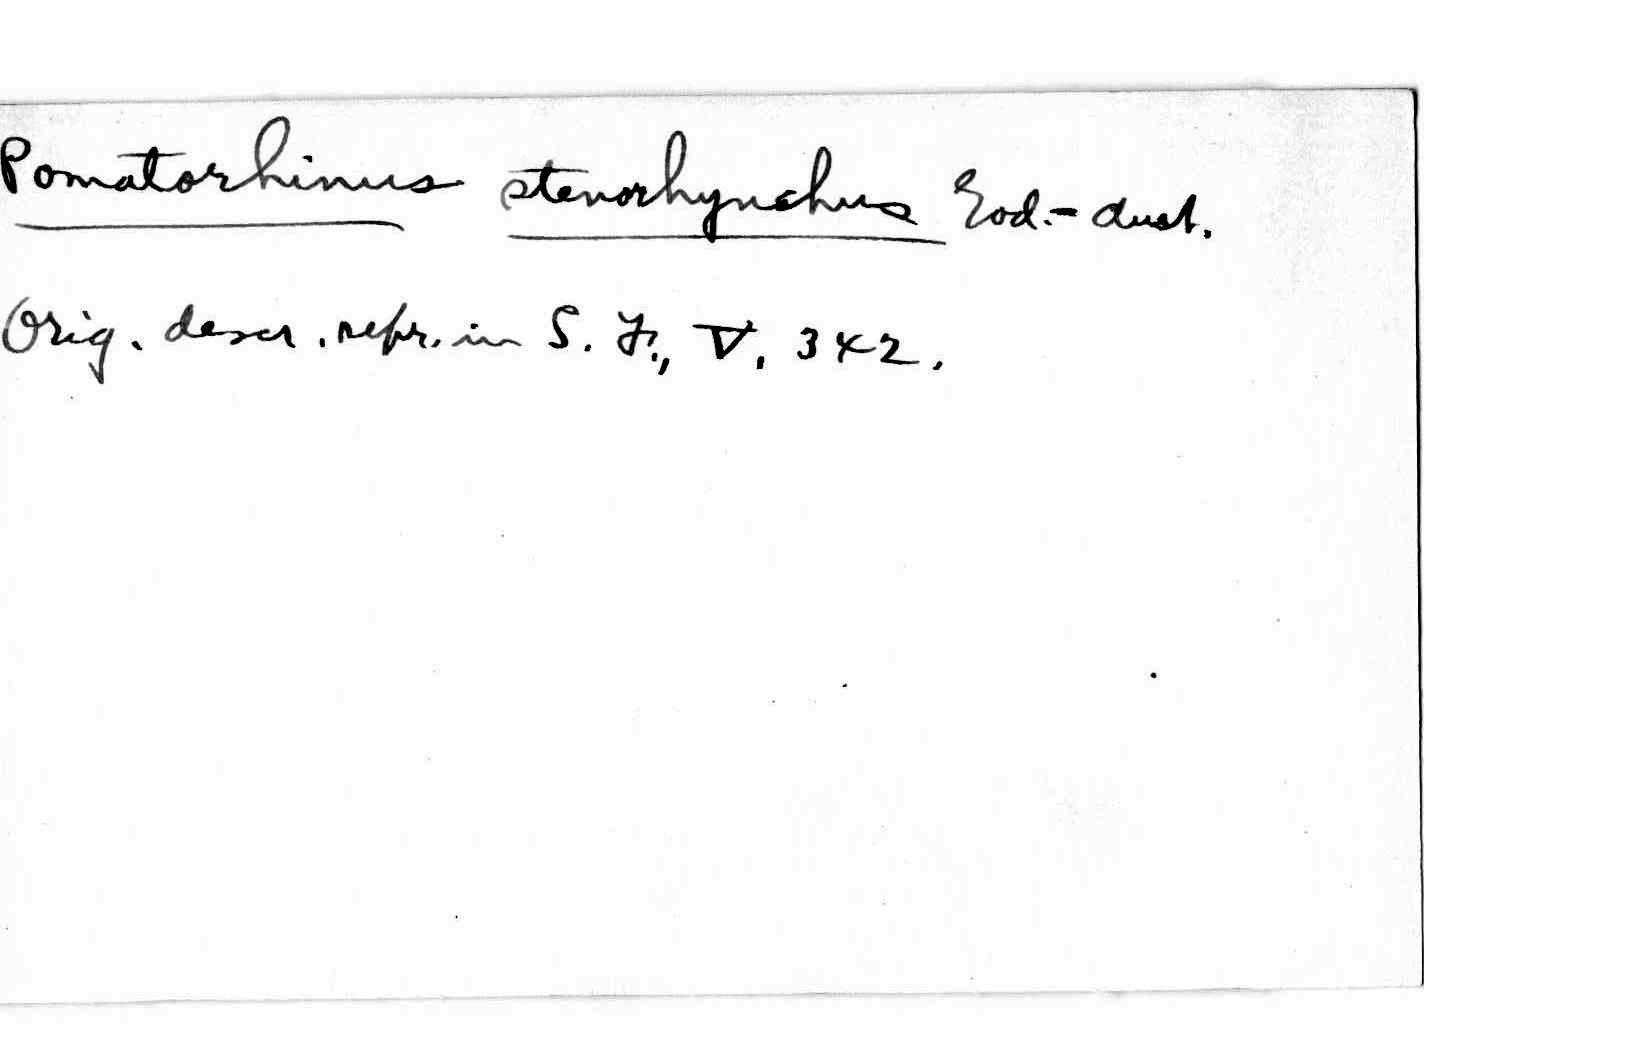 Pomatorhinus stenorhynchus God.-Aust.
Orig. descr. repr. in S. F., V, 342.